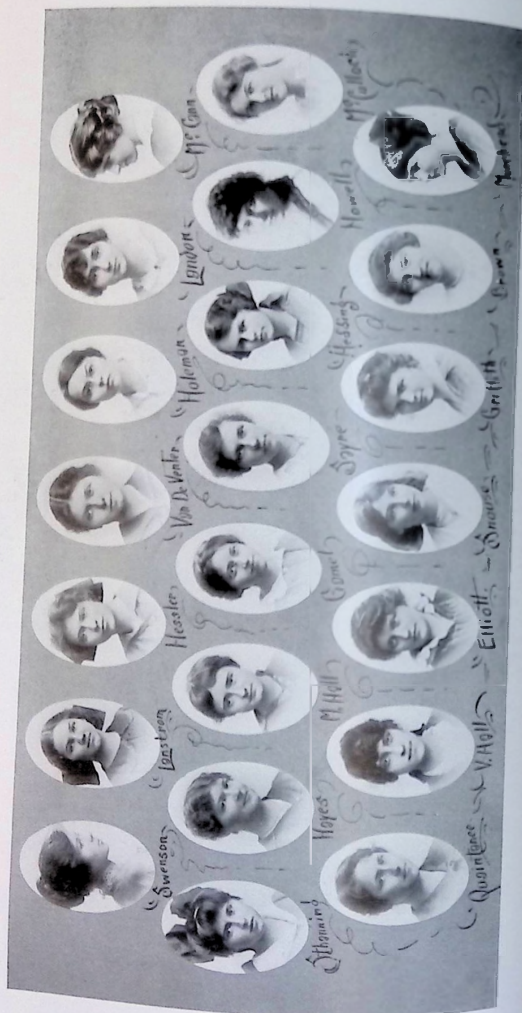 Swenson Lonstrom Hessler Van DeVenter Holeman London McCann
Sthanning Hayes M. Hall Gamel Sayre Hessing Howell McCulloch
Quaintance V. Hall Elliott Griffith